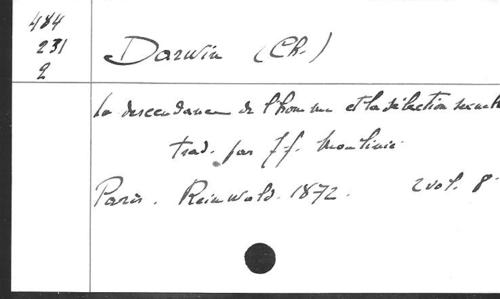 484
231
2
Darwin (Ch.)
La descendance de l'homme et la sélection sexuelle
trad. par J.-J. Moulinié.
Paris. Reinwald. 1872. 2 vol. 8°